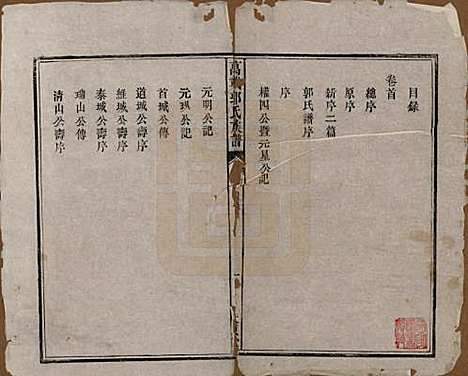 目錄
卷首
總序
原序
新序二篇
郭氏譜序
序
權四公暨元星公記
郭氏族譜
元明公記
元琪公記
首城公傳
道城公壽序
維城公壽序
泰城公壽序
瑞山公傳
清山公壽序